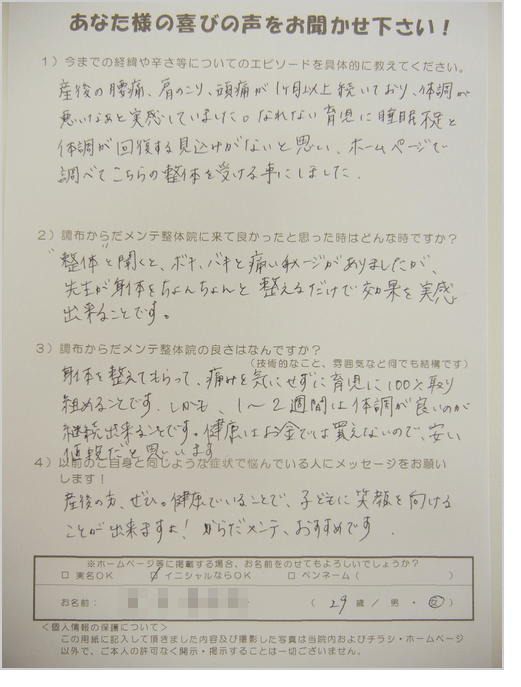 あなた様の喜びの声をお聞かせ下さい！
１）今までの経緯や辛さ等についてのエピソードを具体的に教えてください。
産後の腰痛、肩のこり、頭痛が1ヶ月以上続いており、体調が
悪いなあと実感していました。なれない育児に睡眠不足と
体調が回復する見込みがないと思い、ホームページで
調べてこちらの整体を受ける事にしました．
２）調布からだメンテ整体院に来て良かったと思った時はどんな時ですか？
"整体"と聞くと、ボキ、バキと痛いイメージがありましたが、
先生が身体をちょんちょんと整えるだけで効果を実感
出来ることです。
３）調布からだメンテ整体院の良さはなんですか？
（技術的なこと、雰囲気など何でも結構です）
身体を整えてもらって、痛みを気にせずに育児に100％取り
組めることです．しかも、1～2週間は体調が良いのが
継続出来ることです。健康はお金では買えないので、安い
値段だと思います
４）以前のご自身と同じような症状で悩んでいる人にメッセージをお願い
します！
産後の方、ぜひ。健康でいることで、子どもに笑顔を向ける
ことが出来ますよ！からだメンテ、おすすめです．
※ホームページ等に掲載する場合、お名前をのせてもよろしいでしょうか？
□ 実名OK ☑ イニシャルならOK □ ペンネーム（ ）
お名前： （ 29 歳 ／ 男 ・ 女 ）
＜個人情報の保護について＞
この用紙に記入して頂きました内容及び撮影した写真は当院内およびチラシ・ホームページ
以外で、ご本人の許可なく開示・掲示することは一切ございません。